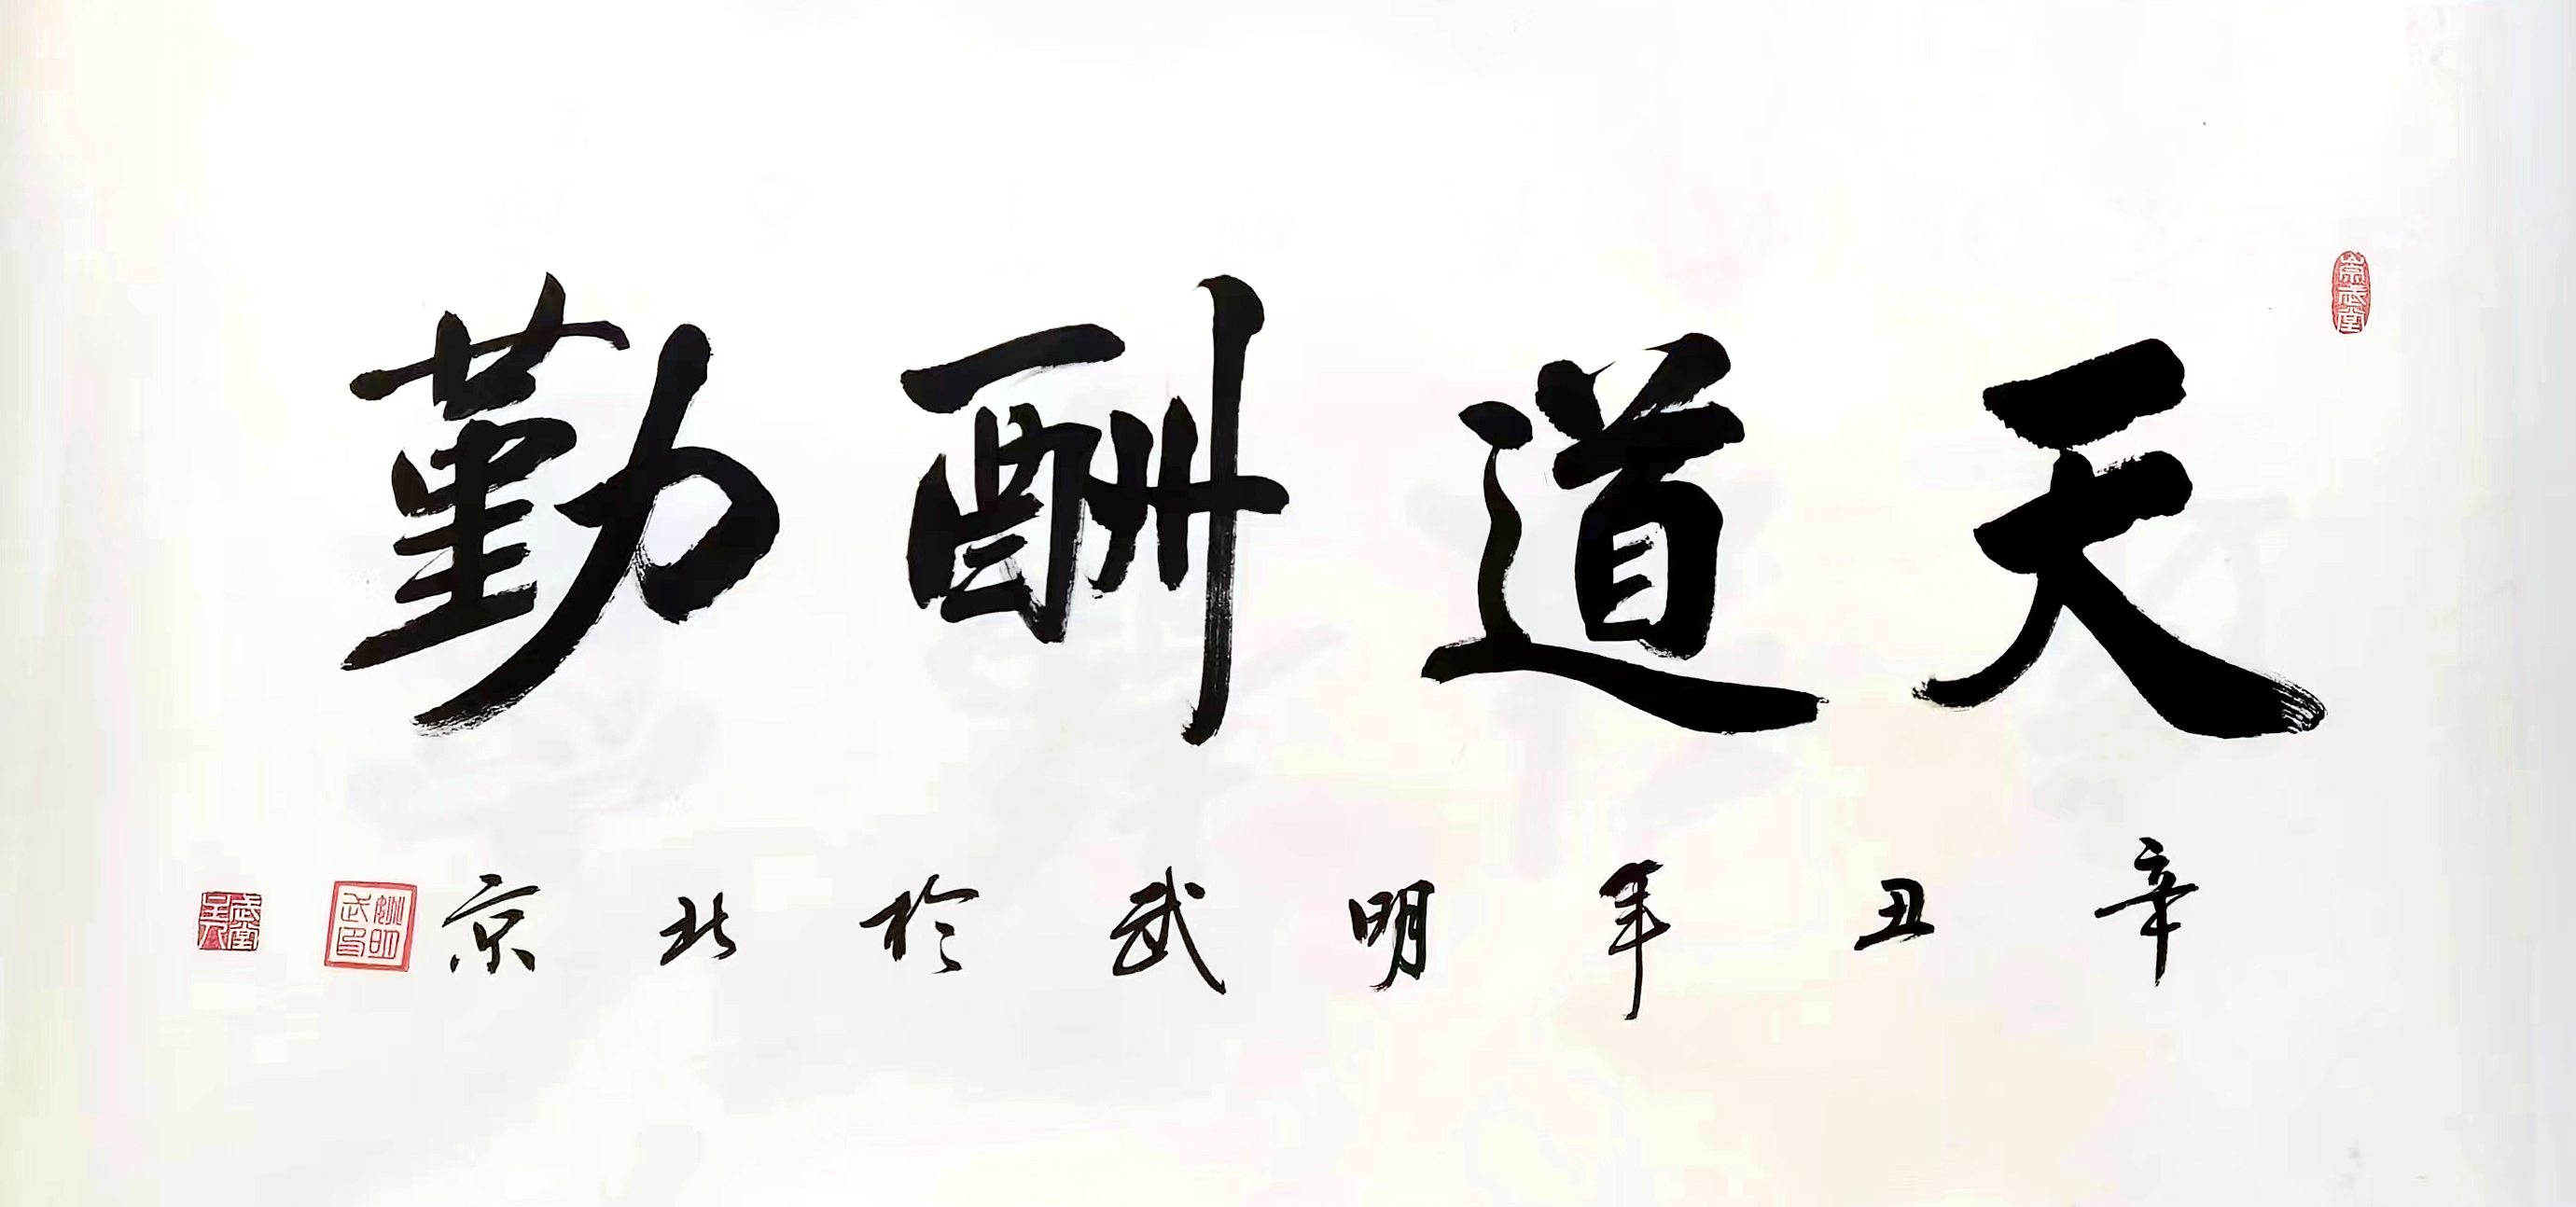 天道酬勤
辛丑年明武於北京
崇武堂